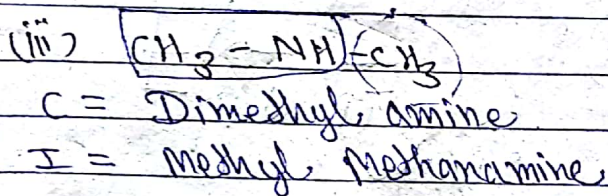 (iii) CH3 - NH - CH3
C = Dimethyl amine
I = Methyl Methanamine